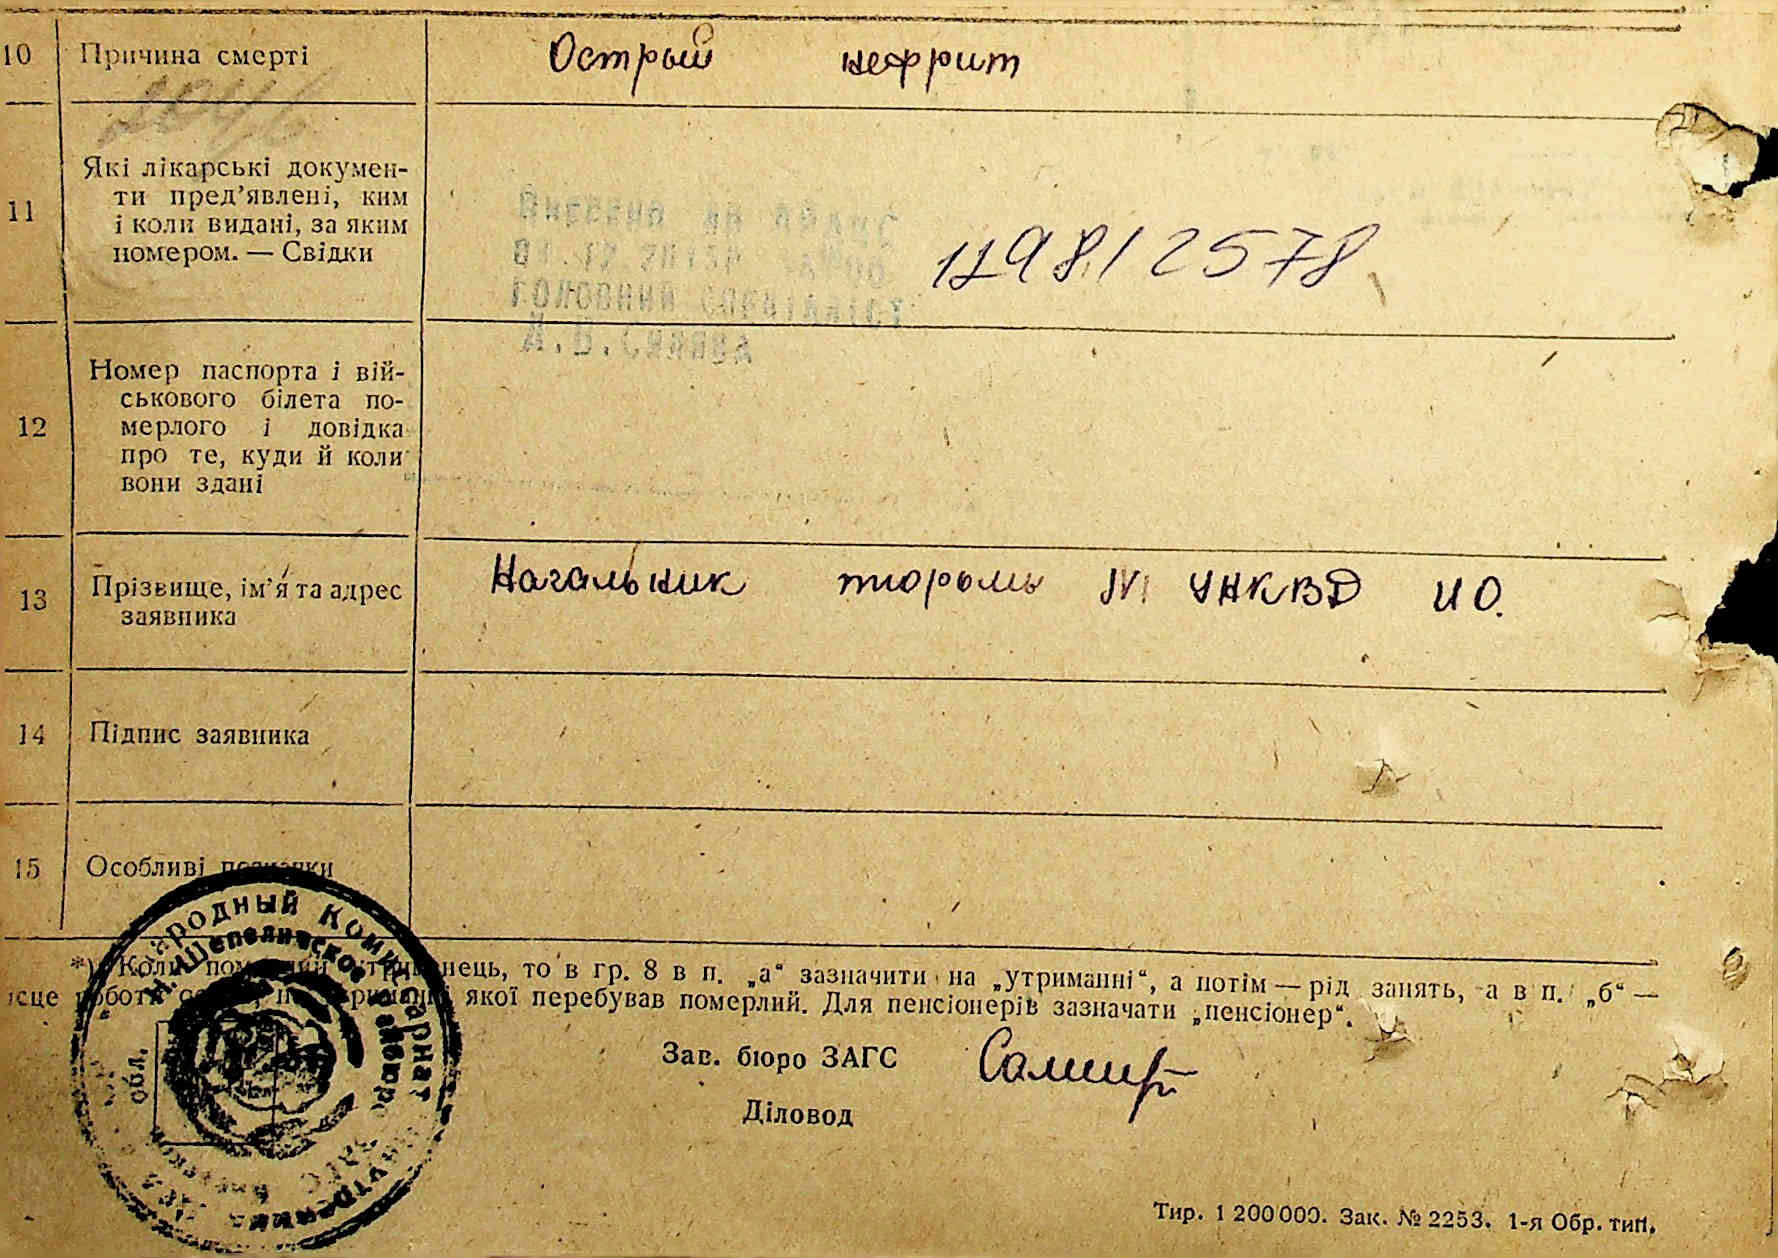 10 Причина смерті Острый нефрит
11 Які лікарські докумен-
ти пред’явлені, ким
і коли видані, за яким
номером. — Свідки
Внесено до ДРАЦС
Головний спеціаліст
1298/2578
12 Номер паспорта і вій-
ськового білета по-
мерлого і довідка
про те, куди й коли
вони здані
13 Прізвище, ім’я та адрес
заявника
Начальник тюрьмы №1 УНКВД И О.
14 Підпис заявника
15 Особливі позначки
*) Коли померлий утриманець, то в гр. 8 в п. „а“ зазначити на „утриманні“, а потім — рід занять, а в п. „б“ —
ісце роботи особи, на утриманні якої перебував померлий. Для пенсіонерів зазначати „пенсіонер“.
Народный Комиссариат Внутренних
Шепетивское райбюро ЗАГС
обл.
Зав. бюро ЗАГС
Діловод
Тир. 1 200 000. Зак. № 2253. 1-я Обр. тип.